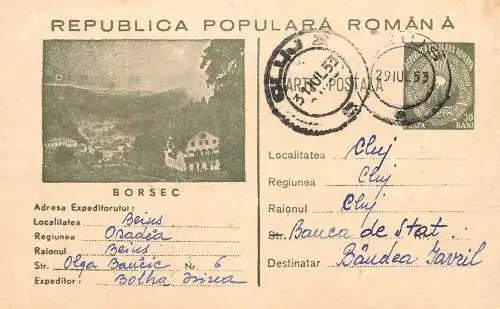 REPUBLICA POPULARĂ ROMÂNĂ
CLUJ
31 IUL 53
29 IUL 53
CARTE POSTALA
REPUBLICA POPULARA ROMANA
POSTA 30 BANI
BORSEC
Adresa Expeditorului:
Localitatea Beius
Regiunea Oradea
Raionul Beius
Str. Olga Bancic Nr. 6
Expeditor: Botha Irina
Localitatea Cluj
Regiunea Cluj
Raionul Cluj
Str. Banca de Stat
Destinatar Bândea Gavril